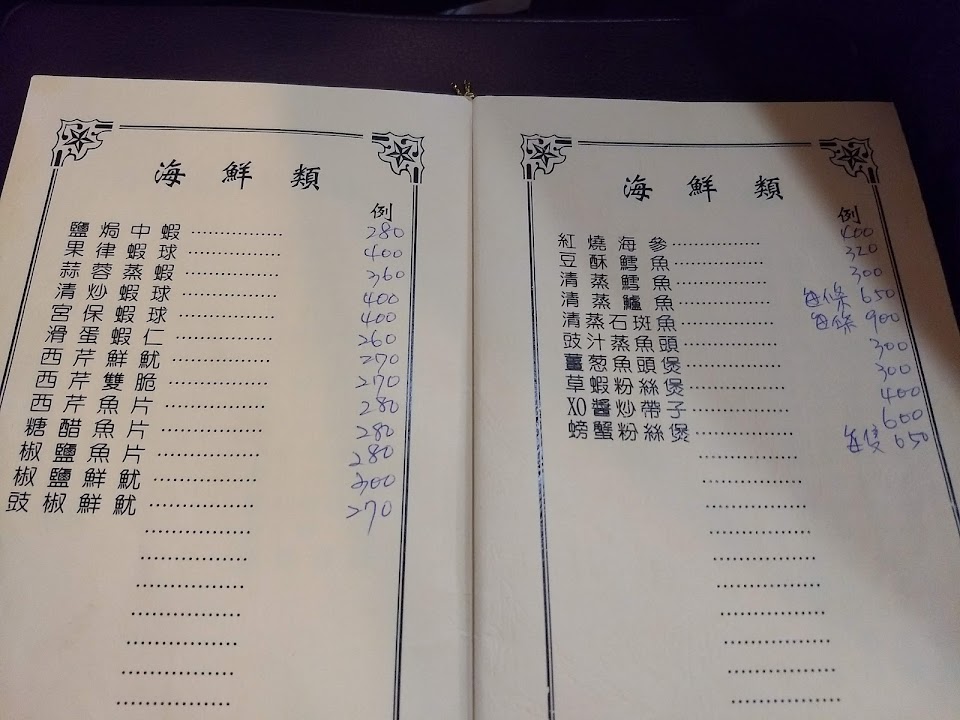 海鮮類
例
鹽焗中蝦 280
果律蝦球 400
蒜蓉蒸蝦 360
清炒蝦球 400
宮保蝦球 400
滑蛋蝦仁 260
西芹鮮魷 270
西芹雙脆 270
西芹魚片 280
糖醋魚片 280
椒鹽魚片 280
椒鹽鮮魷 300
豉椒鮮魷 270
海鮮類
例
紅燒海參 400
豆酥鱈魚 320
清蒸鱈魚 300
清蒸鱸魚 每條 650
清蒸石斑魚 每條 900
豉汁蒸魚頭 300
薑葱魚頭煲 300
草蝦粉絲煲 400
XO醬炒帶子 600
螃蟹粉絲煲 每隻 650